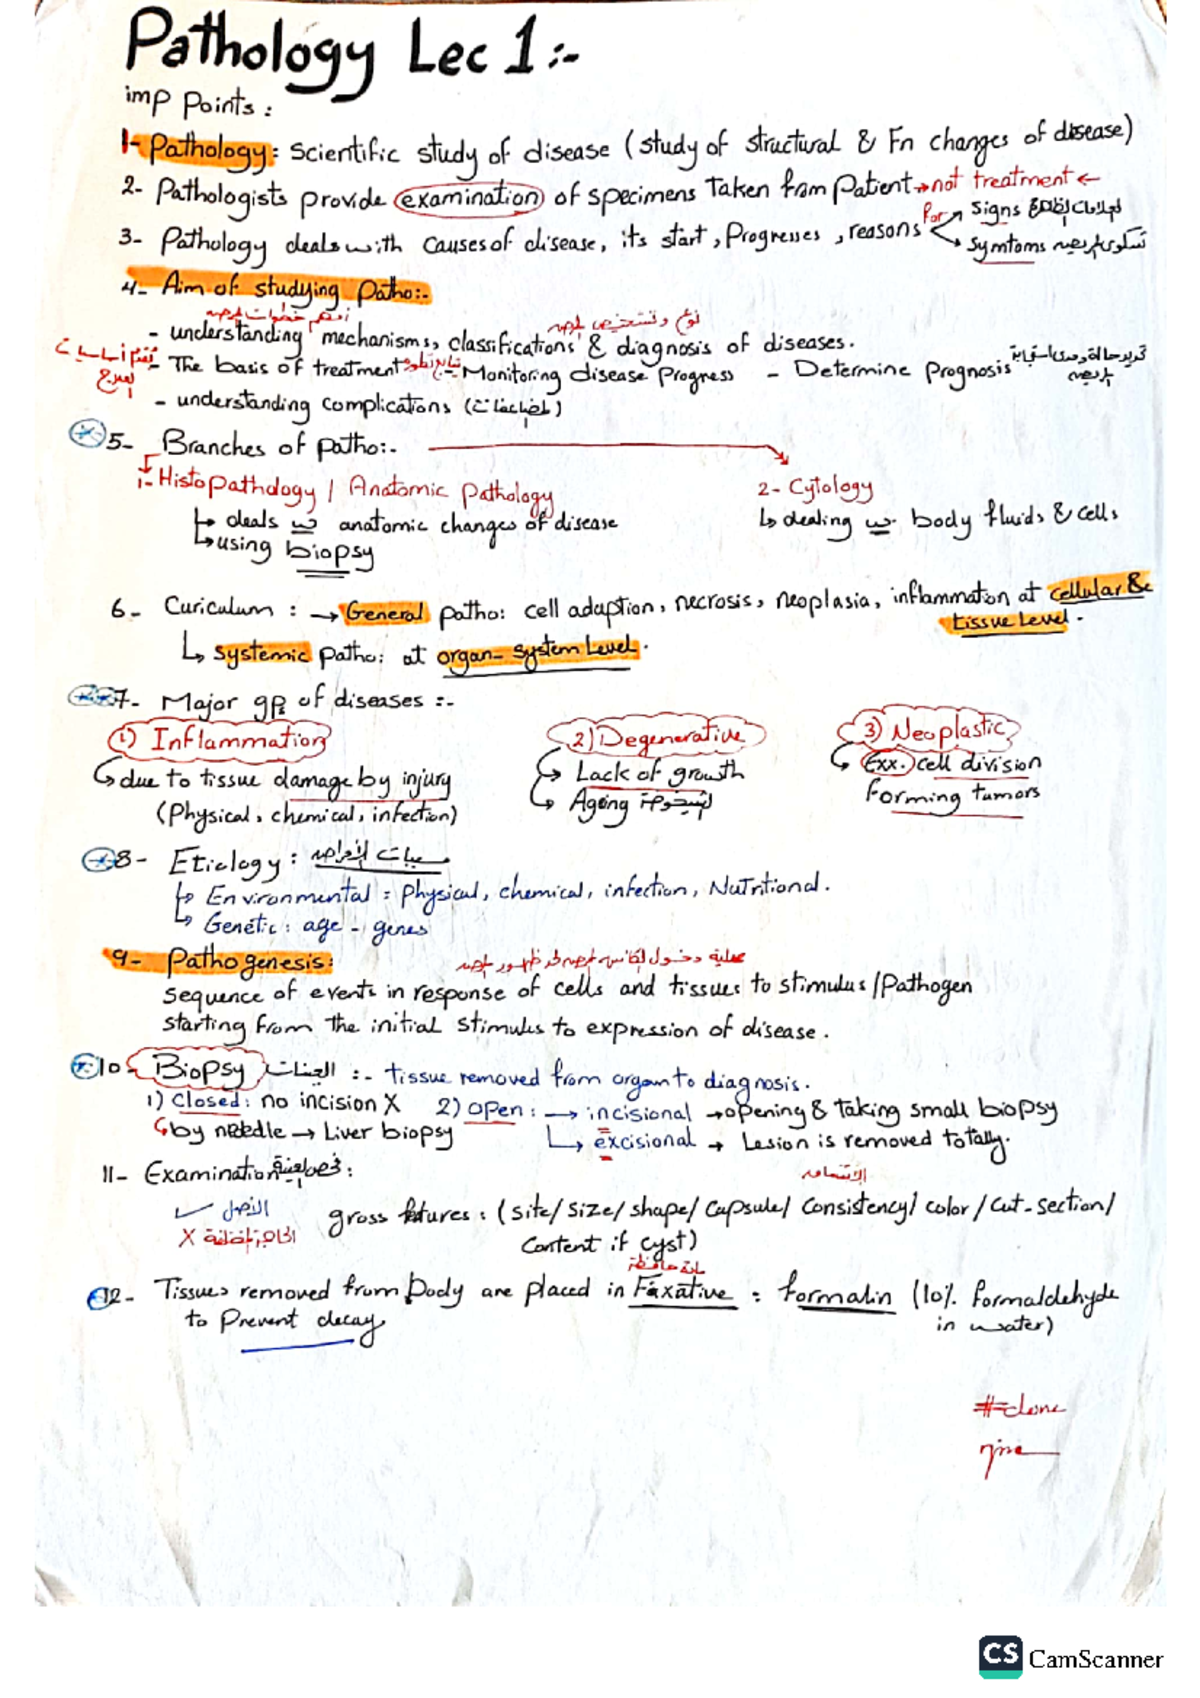 Pathology Lec 1 :-
imp Points :
1- Pathology: Scientific study of disease (study of structural & Fn changes of disease)
2- Pathologists provide examination of specimens Taken from Patient → not treatment ←
3- Pathology deals with causes of disease, its start, Progresses, reasons for Signs
Symtoms
4- Aim of studying Patho:-
- understanding mechanisms, classifications & diagnosis of diseases.
- The basis of treatment - Monitoring disease Progress - Determine Prognosis
- understanding complications (مضاعفات)
5- Branches of Patho:-
1- Histopathology / Anatomic Pathology
2- Cytology
deals with anatomic changes of disease
dealing with body fluids & cells
using biopsy
6- Curiculum : → General patho: cell adaption, necrosis, neoplasia, inflammation at cellular &
tissue Level.
systemic patho: at organ-system Level.
7- Major gps of diseases :-
1) Inflammation 2) Degenerative 3) Neoplastic
due to tissue damage by injury
Lack of growth
Exx. cell division
(Physical, chemical, infection)
Ageing الشيخوخة
Forming tumors
8- Etiology : مسببات الأمراض
Environmental : physical, chemical, infection, Nutritional.
Genetic : age - genes
9- Pathogenesis:
Sequence of events in response of cells and tissues to stimulus / Pathogen
starting from the initial stimulus to expression of disease.
10- Biopsy العينات :- tissue removed from organ to diagnosis.
1) Closed : no incision X 2) open : → incisional → opening & taking small biopsy
by needle → Liver biopsy
excisional → Lesion is removed totally.
11- Examination فحص العينة :
gross fetures : (site/ size/ shape/ Capsule/ Consistency/ color / Cut-section/
Content if cyst)
مادة حافظة
12- Tissues removed from body are placed in Faxative : formalin (10% formaldehyde
in water)
to Prevent decay
#done
CS CamScanner